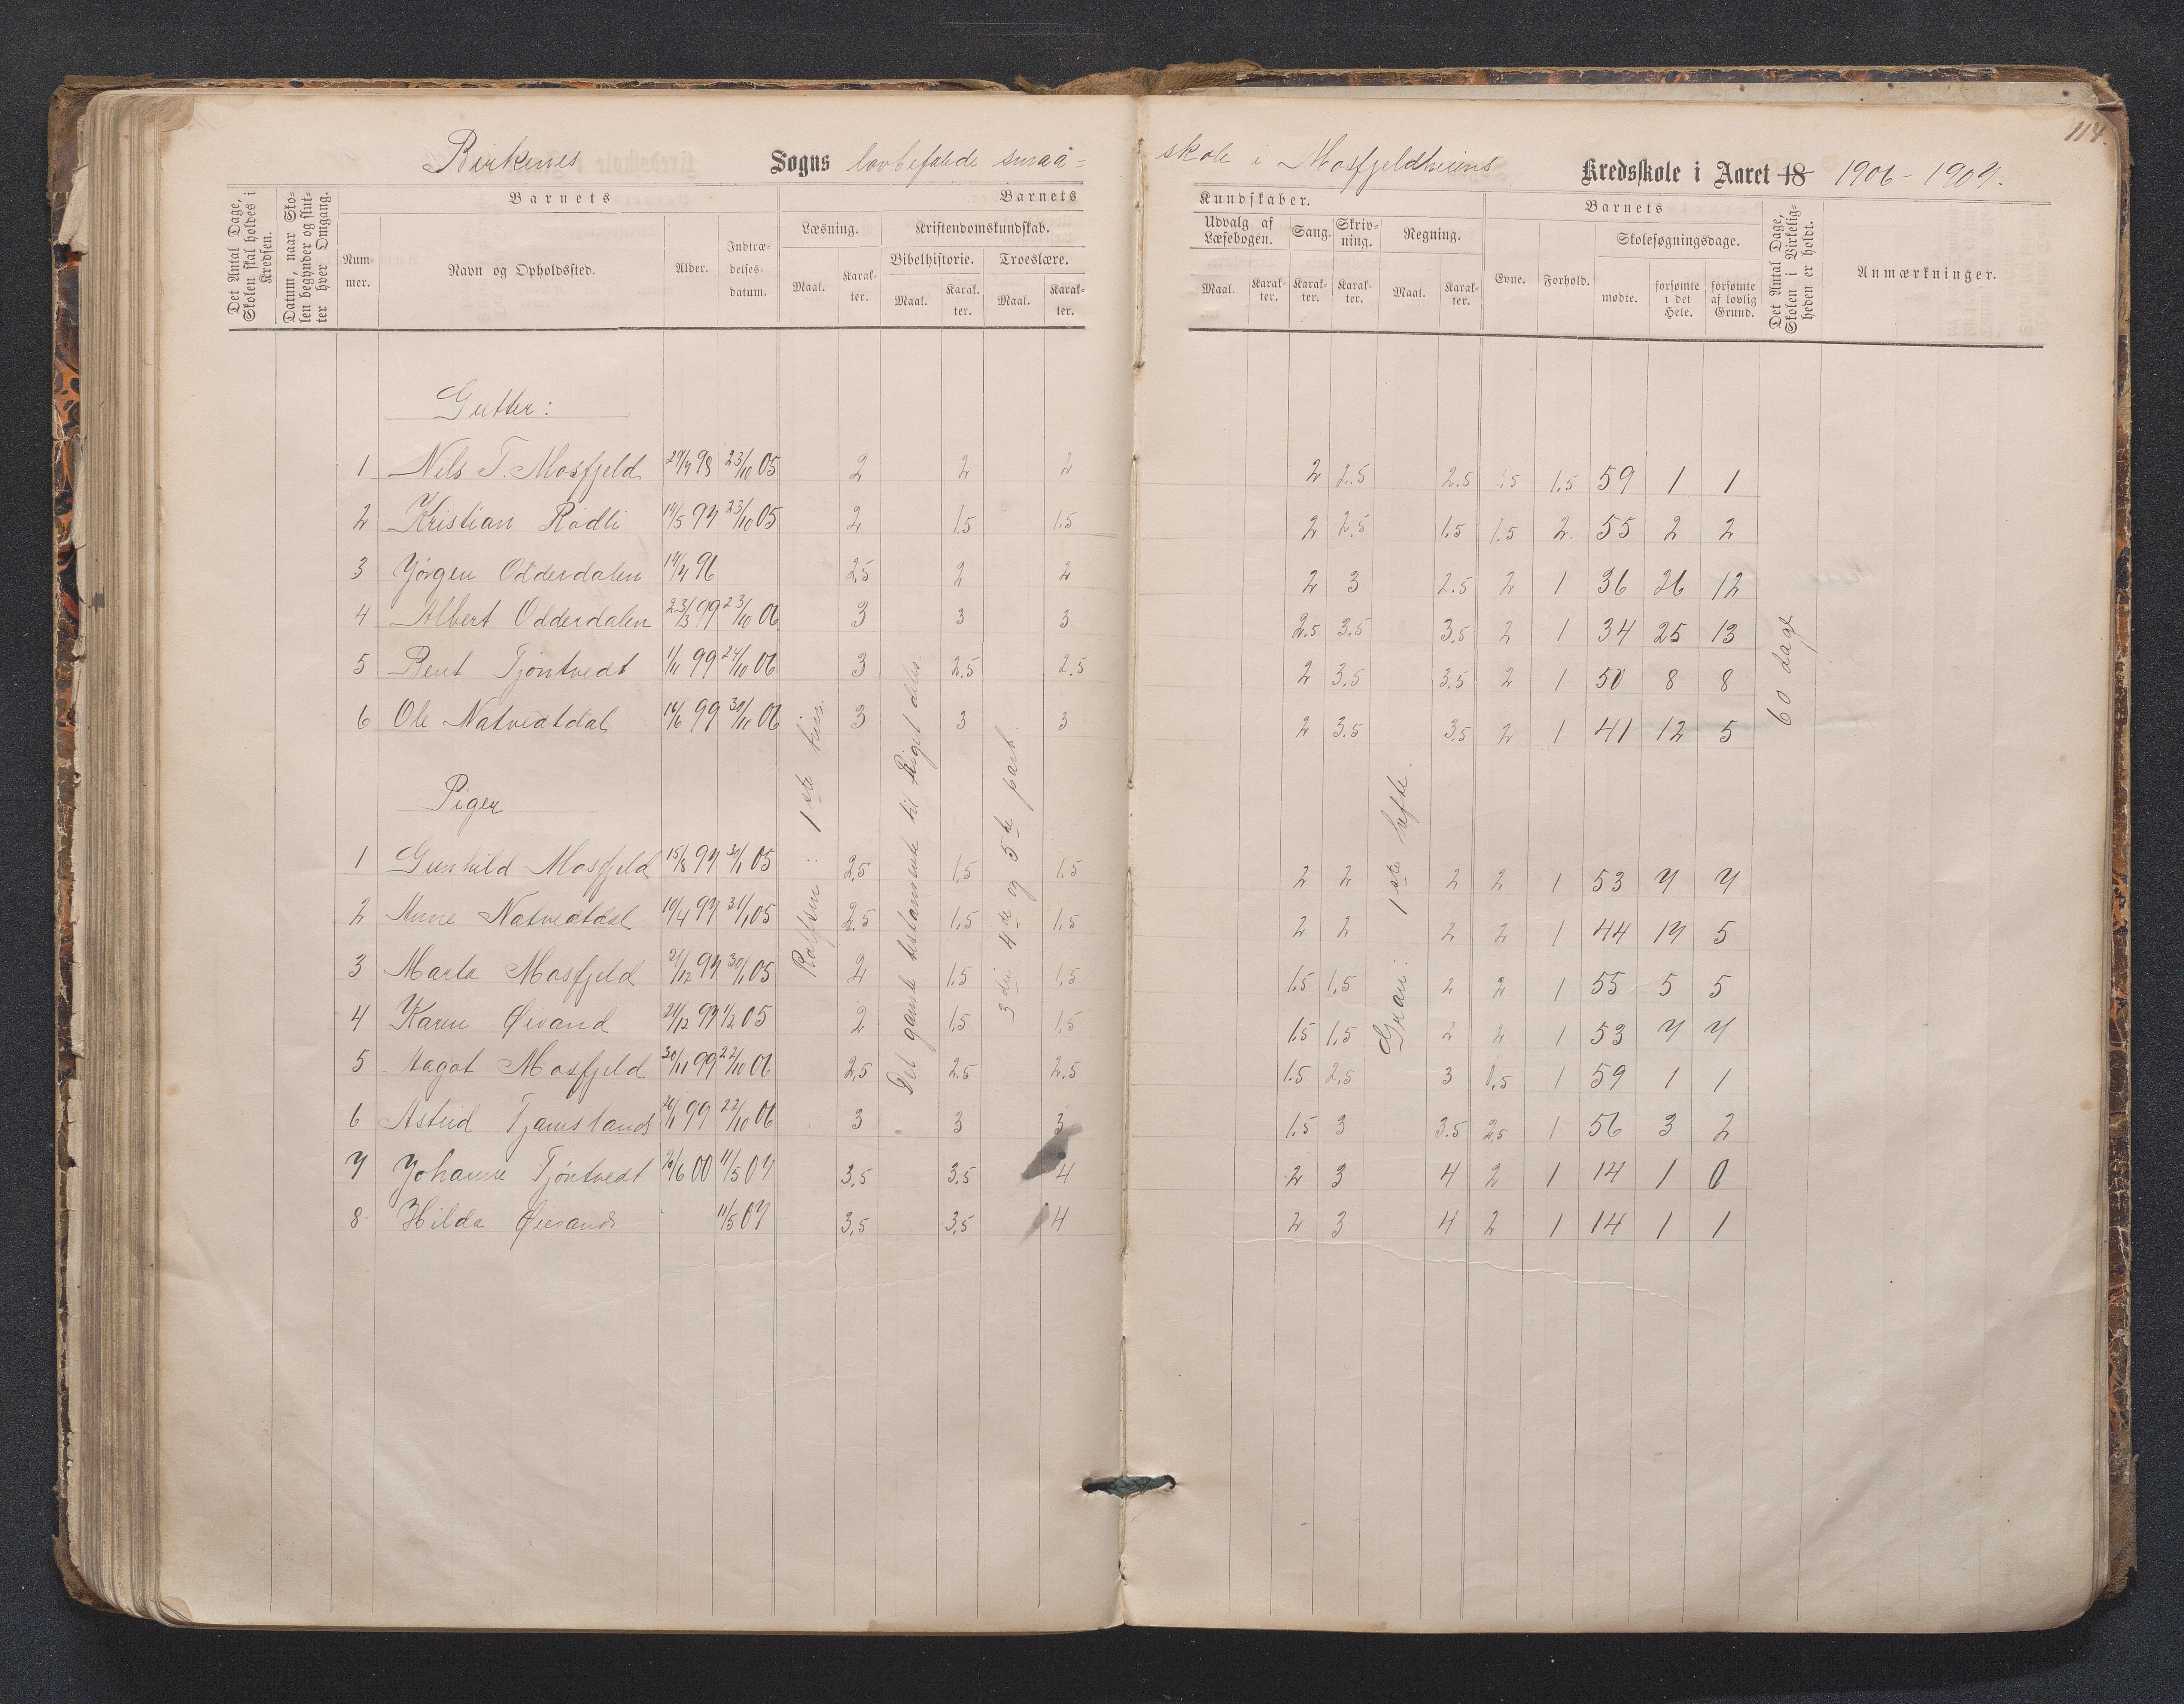 114.
Birkenes Sogns lovbefalede smaa=skole i Mosfjeldheiens Kredsskole i Aaret 18 1906-1907.
Det Antal Dage, Skolen skal holdes i Kredsen.
Datum, naar Skolen begynder og slutter hver Omgang.
Barnets
Nummer.
Navn og Opholdssted.
Alder.
Indtrædelsesdatum.
Barnets
Læsning.
Maal.
Karakter.
Kristendomskundskab.
Bibelhistorie.
Maal.
Karakter.
Troeslære.
Maal.
Karakter.
Kundskaber.
Udvalg af Læsebogen.
Maal.
Karakter.
Sang.
Karakter.
Skrivning.
Karakter.
Regning.
Maal.
Karakter.
Barnets
Evne.
Forhold.
Skolesøgningsdage.
mødte.
forsømte i det Hele.
forsømte af lovlig Grund.
Det Antal Dage, Skolen i Virkeligheden er holdt.
Anmærkninger.
Gutter:
1 Nils T. Mosfjeld 29/7 98 23/10 05 2 2 2 2 2.5 2.5 1.5 1.5 59 1 1
2 Kristian Rødli 14/5 97 23/10 05 2 1.5 1.5 2 2.5 1.5 1.5 2. 55 2 2
3 Jørgen Odderdalen 96 2.5 2 2 2 3 2.5 2 1 36 26 12
4 Albert Odderdalen 23/3 99 23/10 06 3 3 3 2.5 3.5 3.5 2 1 34 25 13
5 Bent Tjøntvedt 1/11 99 24/10 06 3 2.5 2.5 2 3.5 3.5 2 1 50 8 8
6 Ole Natvedtdal 16/6 99 30/11 06 3 3 3 2 3.5 3.5 2 1 41 12 5
Piger
1 Gunhild Mosfjeld 15/8 97 05 2.5 1.5 1.5 2 2 2 2 1 53 7 7
2 Anne Natvedtdal 10/4 97 31/1 05 2.5 1.5 1.5 2 2 2 2 1 44 17 5
3 Marta Mosfjeld 21/12 97 30/1 05 2 1.5 1.5 1.5 1.5 2 2 1 55 5 5
4 Karen Øivand 21/12 97 1/2 05 2 1.5 1.5 1.5 1.5 2 2 1 53 7 7
5 Aagot Mosfjeld 30/11 99 22/10 06 2.5 2.5 2.5 1.5 2.5 3 1.5 1 59 1 1
6 Astrid Tjamslands 99 22/10 06 3 3 3 1.5 3 3.5 2.5 1 56 3 2
7 Johanne Tjøntvedt 00 11/5 07 3.5 3.5 4 2 3 4 2 1 14 1 0
8 Hilda Øievands 11/5 07 3.5 3.5 4 2 3 4 2 1 14 1 1
Rolfsen: 1ste
Det gamle testamente til Riget deles.
3die 4de og 5te part.
Gran: 1ste hefte.
60 dage